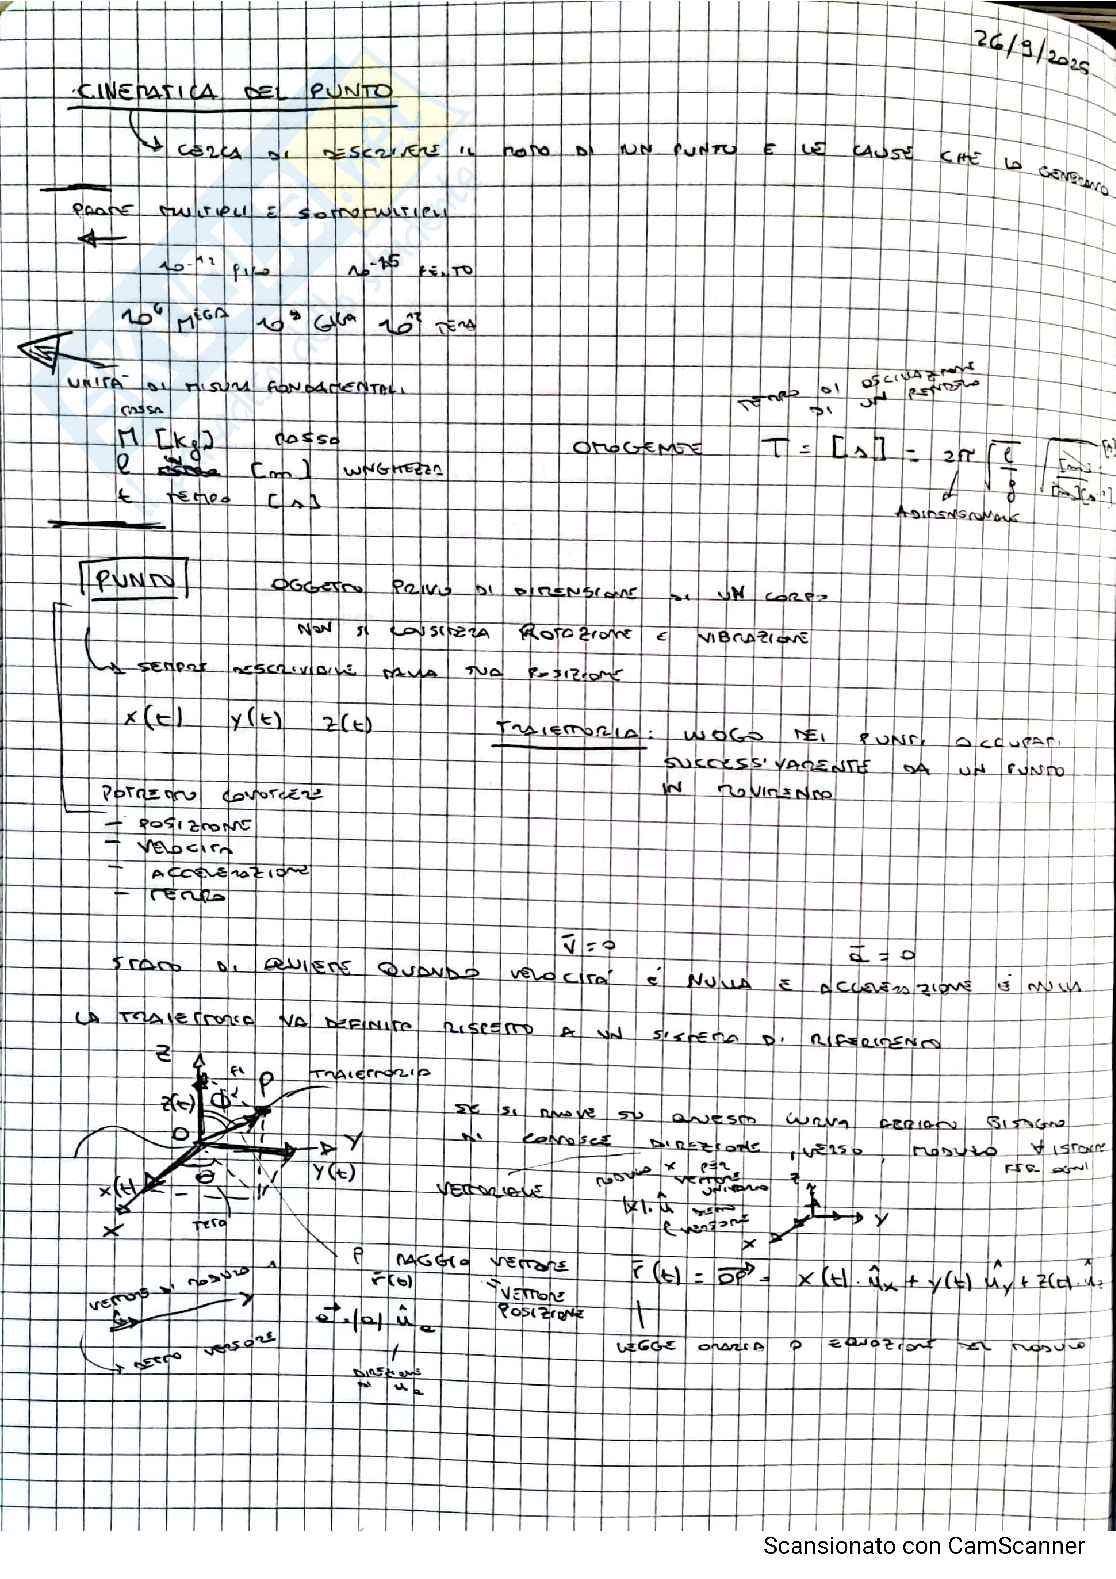 26/9/2025
CINEMATICA DEL PUNTO
CERCA DI DESCRIVERE IL MOTO DI UN PUNTO E LE CAUSE CHE LO GENERANO
MULTIPLI E SOTTOMULTIPLI
10^-12 PICO 10^-15 FEMTO
10^6 MEGA 10^9 GIGA 10^12 TERA
UNITÀ DI MISURA FONDAMENTALI
MASSA
M [kg] MASSA
l [m] LUNGHEZZA
t TEMPO [s]
TEMPO DI OSCILLAZIONE
DI UN PENDOLO
OMOGENEE T = [s] = 2π √(l/g)
ADIMENSIONALE
PUNTO OGGETTO PRIVO DI DIMENSIONE DI UN CORPO
NON SI CONSIDERA ROTAZIONE E VIBRAZIONE
SEMPRE DESCRIVIBILE DALLA SUA POSIZIONE
x(t) y(t) z(t)
TRAIETTORIA: LUOGO DEI PUNTI OCCUPATI
SUCCESSIVAMENTE DA UN PUNTO
IN MOVIMENTO
POTREMMO CONOSCERE
- POSIZIONE
- VELOCITÀ
- ACCELERAZIONE
- TEMPO
v̄=0 ā=0
STATO DI QUIETE QUANDO VELOCITÀ È NULLA E ACCELERAZIONE È NULLA
LA TRAIETTORIA VA DEFINITA RISPETTO A UN SISTEMA DI RIFERIMENTO
Z
z(t) Φ P TRAIETTORIA
O Y
x(t) θ y(t)
X
TETA
SE SI MUOVE SU QUESTA CURVA ABBIAMO BISOGNO
DI CONOSCE DIREZIONE, VERSO, MODULO ∀ ISTANTE
PER OGNI
VETTORIALE
MODULO X PER
VETTORE
UNITARIO
|x|·û
VERSORE
Z
Y
X
P RAGGIO VETTORE
r̄(t) VETTORE
POSIZIONE
r̄(t) = OP = x(t)·ûx + y(t) ûy + z(t)·ûz
LEGGE ORARIA O EQUAZIONE DEL MODULO
VETTORE DI MODULO 1
DETTO VERSORE
DIREZIONE